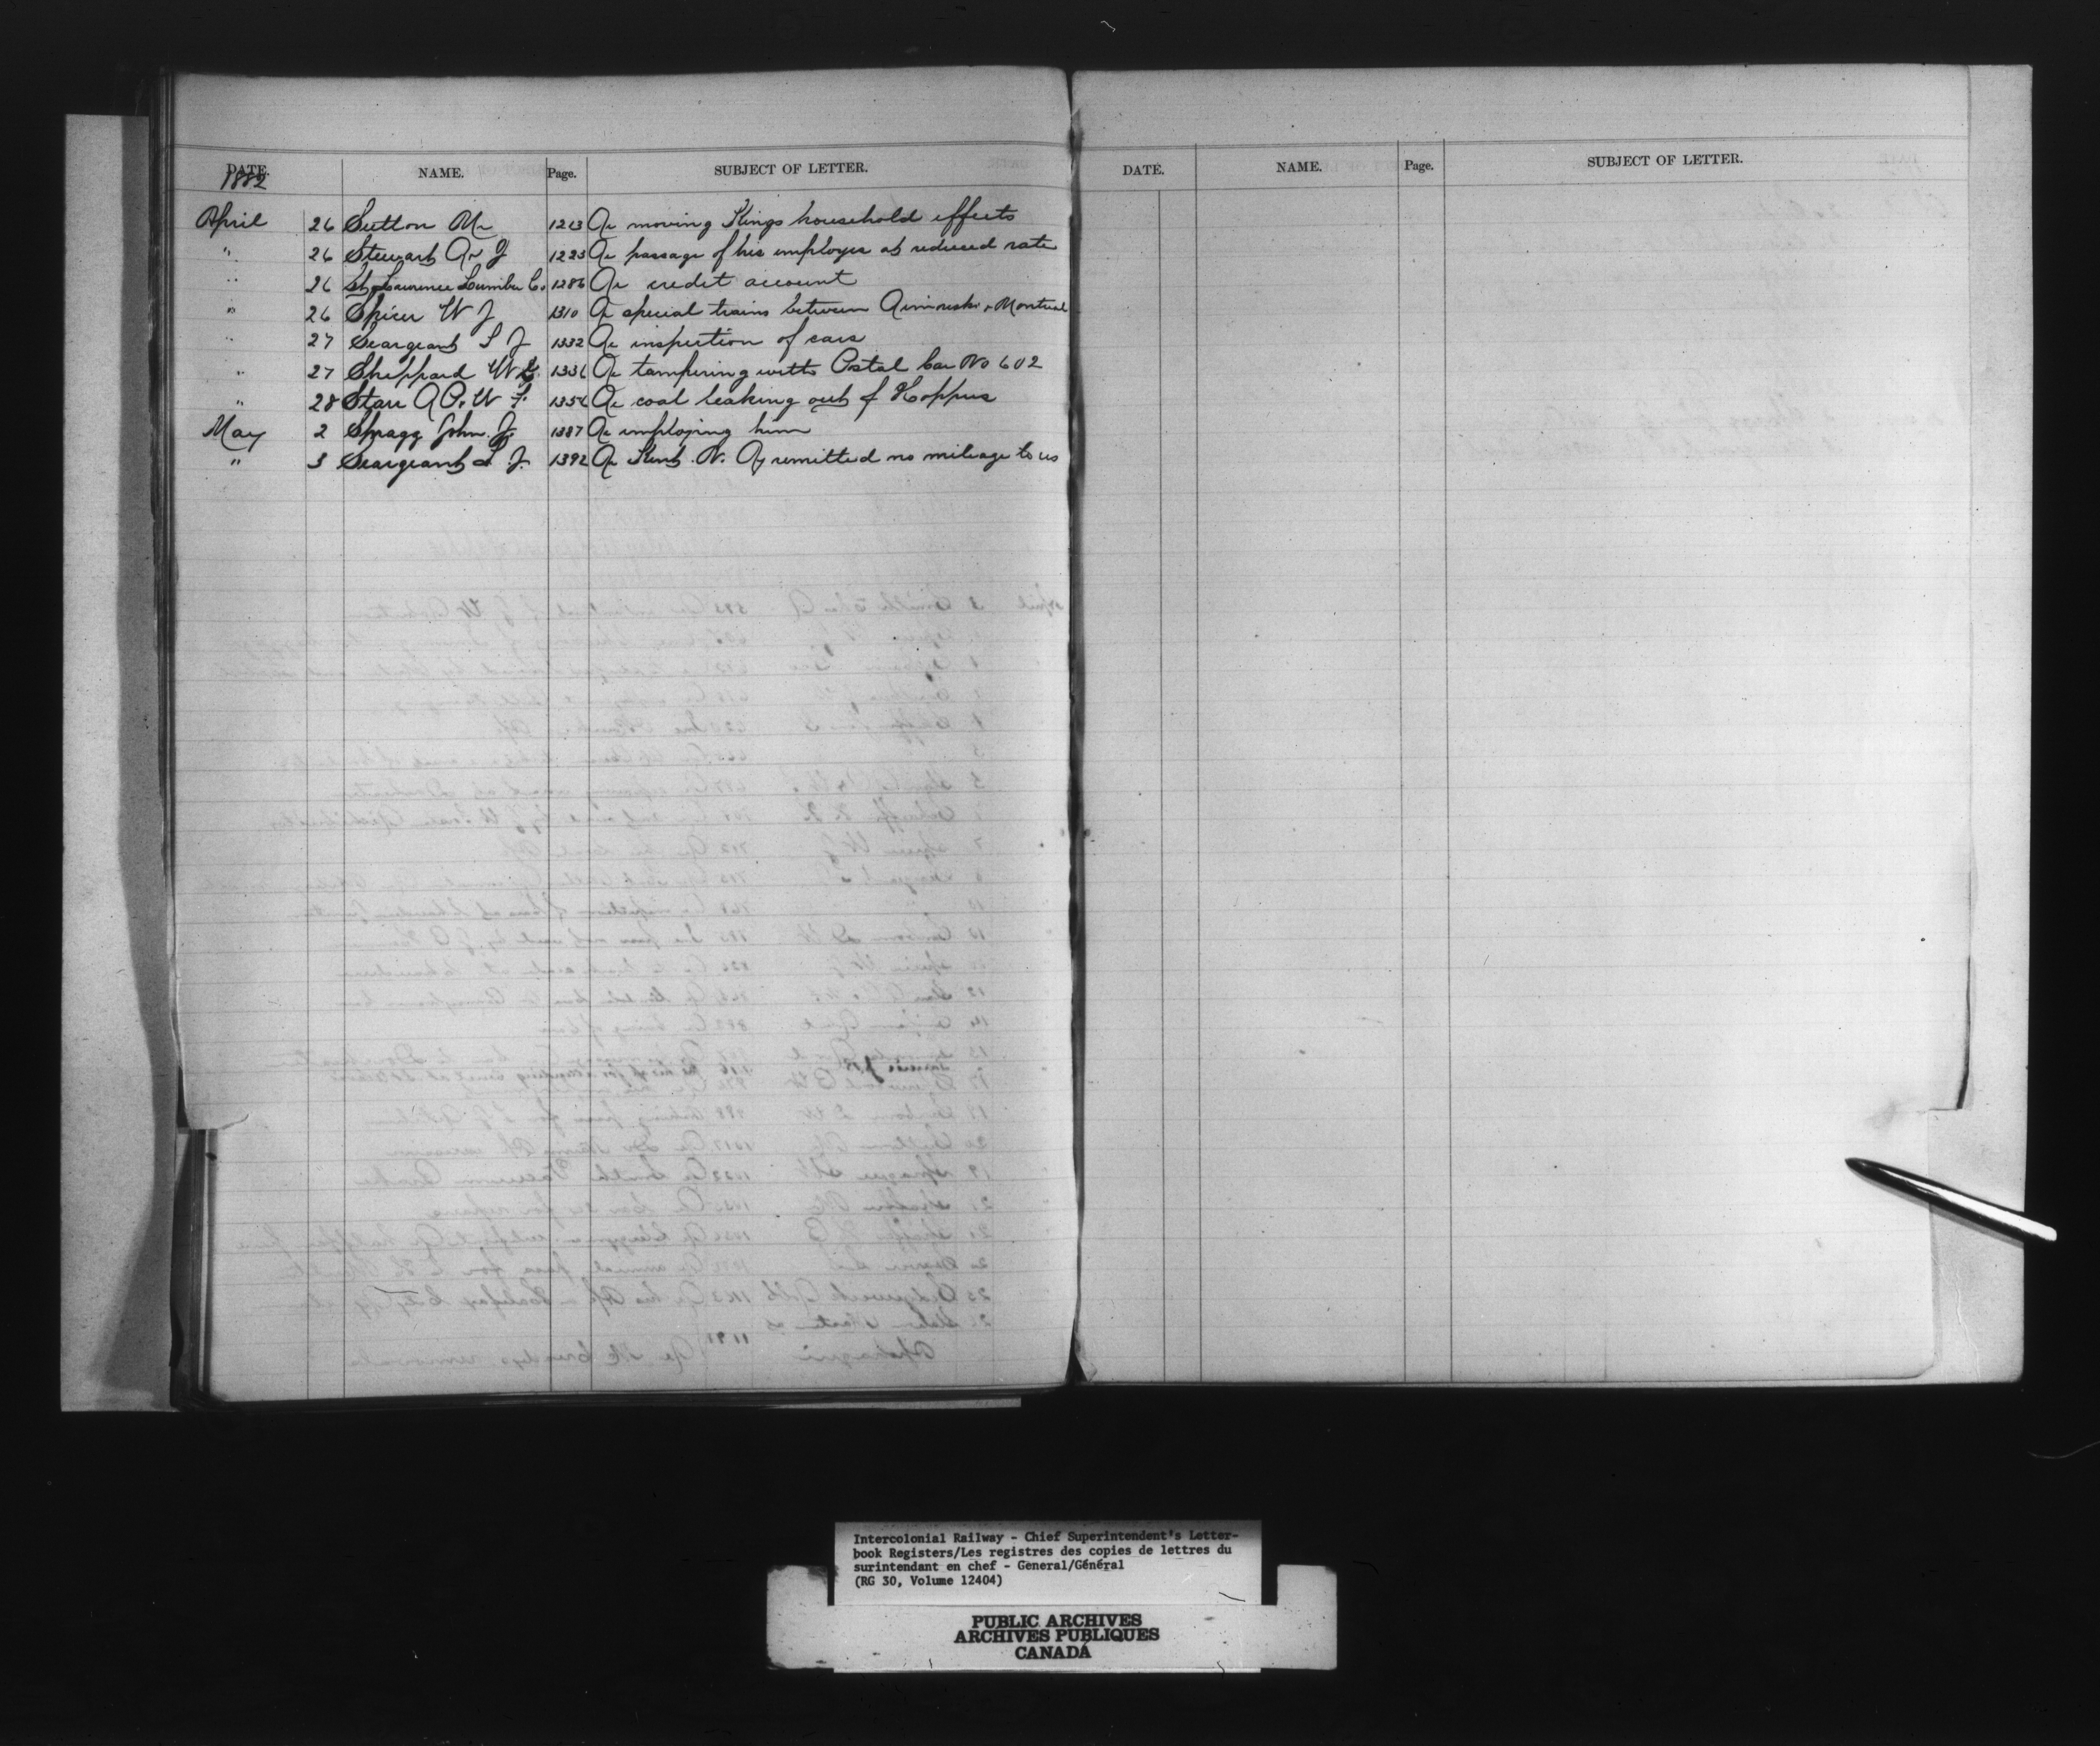 DATE. NAME. Page. SUBJECT OF LETTER.
1882
April 26 Sutton M 1213 Re moving Kings household effects
" 26 Stewart R J 1223 Re passage of his employes at reduced rate
" 26 St Lawrence Lumber Co. 1286 Re credit account
" 26 Spicer W J 1310 Re special trains between Rimouski & Montreal
" 27 Seargeant L J 1332 Re inspection of cars
" 27 Sheppard W 1336 Re tampering with Postal Car No 602
" 28 Starr R P. & W F. 1354 Re coal leaking out of Hoppers
May 2 Spragg John J. 1387 Re employing him
" 3 Seargeant L J. 1392 Re Kent N. Ry remitted no mileage to us
DATE. NAME. Page. SUBJECT OF LETTER.
Intercolonial Railway - Chief Superintendent's Letter-
book Registers/Les registres des copies de lettres du
surintendant en chef - General/Général
(RG 30, Volume 12404)
PUBLIC ARCHIVES
ARCHIVES PUBLIQUES
CANADA